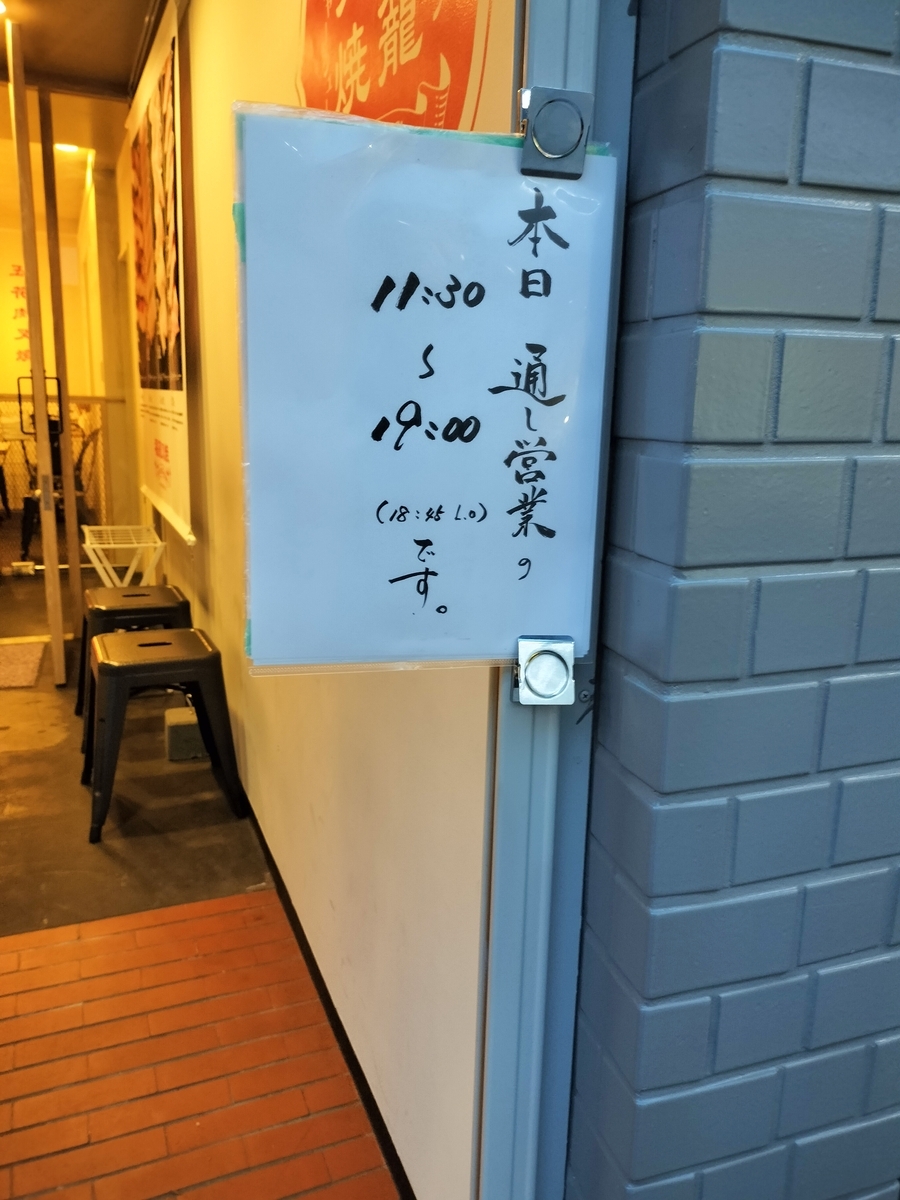 本日 通し営業の
11:30
～
19:00
(18:45 L.O)
です。
龍
焼